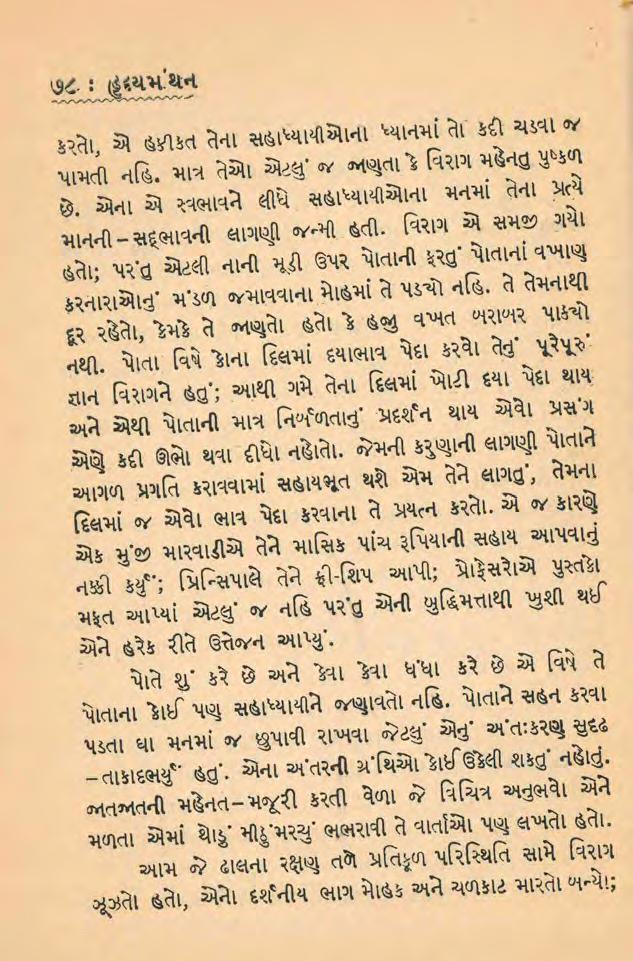 ૭૮ : હૃદયમંથન
કરતો, એ હકીકત તેના સહાધ્યાયીઓના ધ્યાનમાં તો કદી ચડવા જ
પામતી નહિ. માત્ર તેઓ એટલું જ જાણતા કે વિરાગ મહેનતુ પુષ્કળ
છે. એના એ સ્વભાવને લીધે સહાધ્યાયીઓના મનમાં તેના પ્રત્યે
માનની – સદ્ભાવની લાગણી જન્મી હતી. વિરાગ એ સમજી ગયો
હતો; પરંતુ એટલી નાની મૂડી ઉપર પોતાની ફરતું પોતાનાં વખાણ
કરનારાઓનું મંડળ જમાવવાના મોહમાં તે પડ્યો નહિ. તે તેમનાથી
દૂર રહેતો, કેમકે તે જાણતો હતો કે હજી વખત બરાબર પાક્યો
નથી. પોતા વિષે કોના દિલમાં દયાભાવ પેદા કરવો તેનું પૂરેપૂરું
જ્ઞાન વિરાગને હતું; આથી ગમે તેના દિલમાં ખોટી દયા પેદા થાય
અને એથી પોતાની માત્ર નિર્બળતાનું પ્રદર્શન થાય એવો પ્રસંગ
એણે કદી ઊભો થવા દીધો નહોતો. જેમની કરુણાની લાગણી પોતાને
આગળ પ્રગતિ કરાવવામાં સહાયભૂત થશે એમ તેને લાગતું, તેમના
દિલમાં જ એવો ભાવ પેદા કરવાના તે પ્રયત્ન કરતો. એ જ કારણે
એક મુંજી મારવાડીએ તેને માસિક પાંચ રૂપિયાની સહાય આપવાનું
નક્કી કર્યું; પ્રિન્સિપાલે તેને ફ્રી-શિપ આપી; પ્રોફેસરોએ પુસ્તકો
મફત આપ્યાં એટલું જ નહિ પરંતુ એની બુદ્ધિમત્તાથી ખુશી થઈ
એને હરેક રીતે ઉત્તેજન આપ્યું.
પોતે શું કરે છે અને કેવા કેવા ધંધા કરે છે એ વિષે તે
પોતાના કોઈ પણ સહાધ્યાયીને જણાવતો નહિ. પોતાને સહન કરવા
પડતા ઘા મનમાં જ છુપાવી રાખવા જેટલું એનું અંતઃકરણ સુદૃઢ
– તાકાદભર્યું હતું. એના અંતરની ગ્રંથિઓ કોઈ ઉકેલી શકતું નહોતું.
જાતજાતની મહેનત – મજૂરી કરતી વેળા જે વિચિત્ર અનુભવો એને
મળતા એમાં થોડું મીઠુંમરચું ભભરાવી તે વાર્તાઓ પણ લખતો હતો.
આમ જે ઢાલના રક્ષણ તળે પ્રતિકૂળ પરિસ્થિતિ સામે વિરાગ
ઝૂઝતો હતો, એનો દર્શનીય ભાગ મોહક અને ચળકાટ મારતો બન્યો;